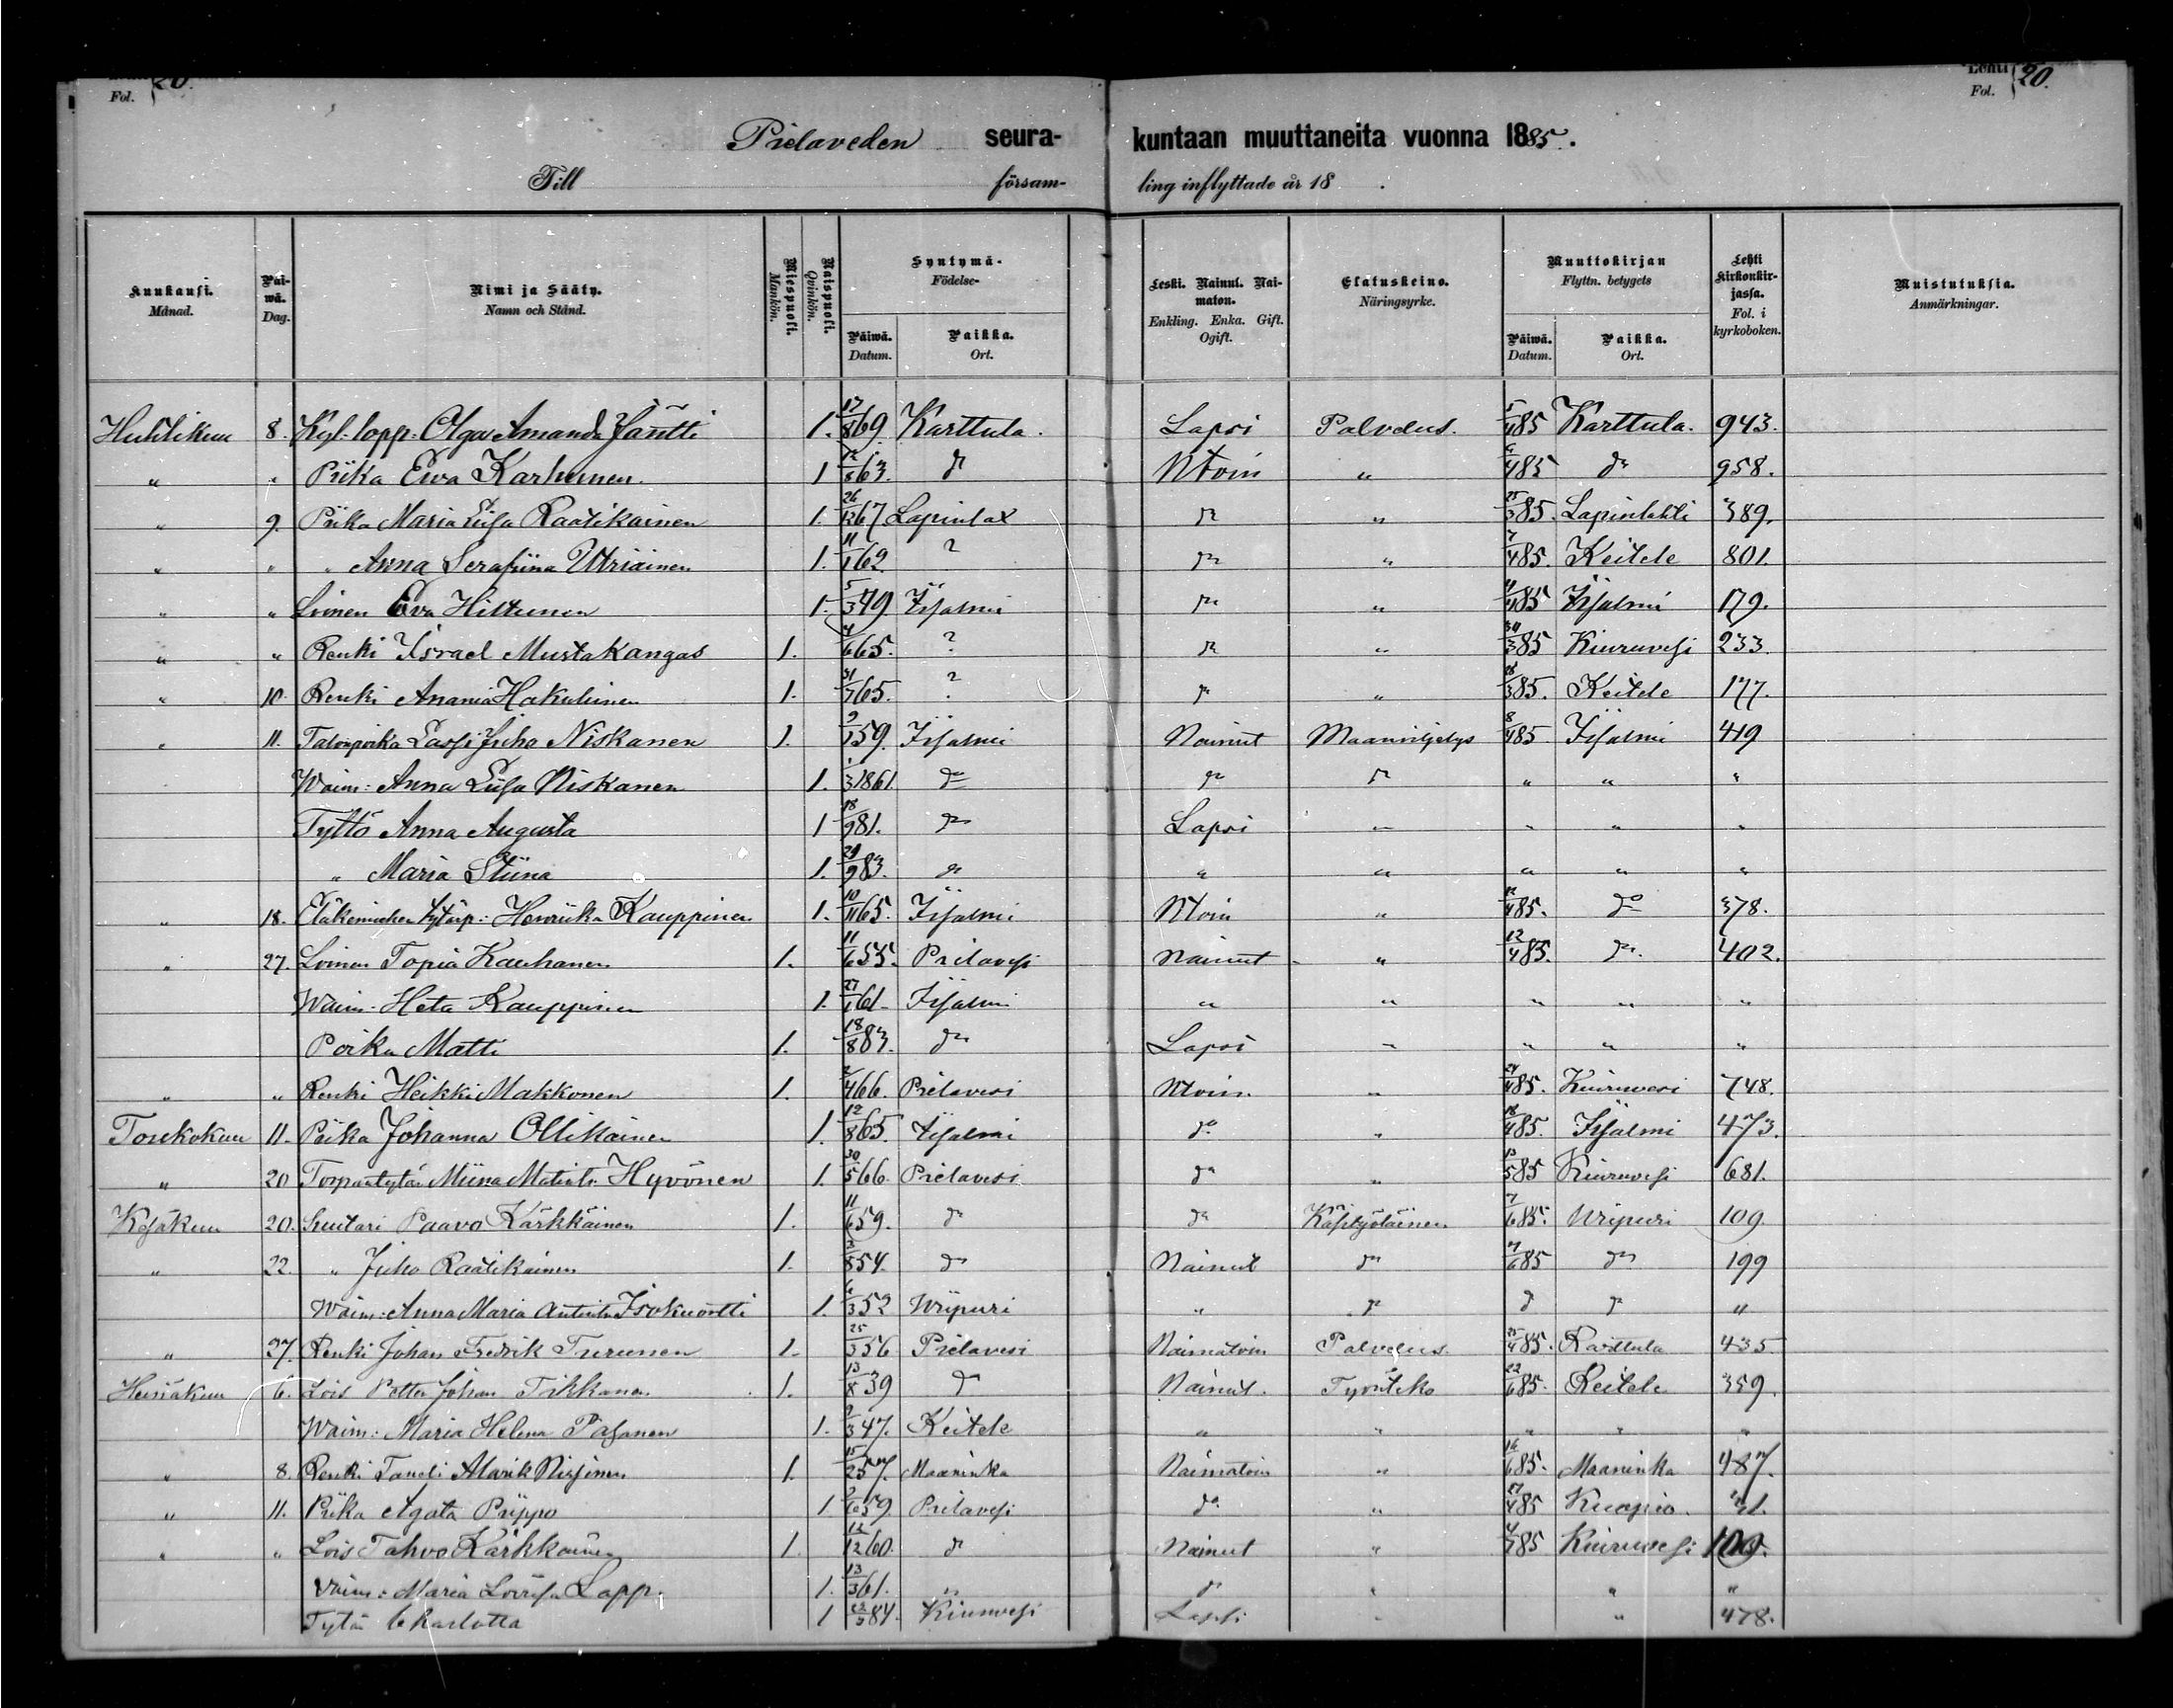 Fol. 20.
Lehti Fol. 20.
Pielaveden seura- kuntaan muuttaneita vuonna 1885.
Till försam- ling inflyttade år 18 .
Kuukausi. Månad. Päiwä. Dag. Nimi ja Sääty. Namn och Stånd. Miespuoli. Mankön. Naispuoli. Qvinkön. Syntymä- Födelse- Päiwä. Datum. Paikka. Ort. Leski. Nainut. Naimaton. Enkling. Enka. Gift. Ogift. Elatuskeino. Näringsyrke. Muuttokirjan Flyttn. betygets Päiwä. Datum. Paikka. Ort. Lehti Kirkonkirjassa. Fol. i kyrkoboken. Muistutuksia. Anmärkningar.
Huhtikuu 8. Kyl: lapp: Olga Amanda Jäntti 1. 17/8 69. Karttula. Lapsi Palvelus. 5/4 85 Karttula. 943.
" " Piika Ewa Karhunen. 1 12/8 63. do Ntoin " 6/4 85 do 958.
" 9. Piika Maria Liisa Raatikainen 1. 26/12 67 Lapinlax do " 25/3 85. Lapinlahti 389.
" " " Anna Serafiina Utriainen 1. 11/1 62. ? do " 7/4 85. Keitele 801.
" " Loinen Eva Hiltunen 1. 5/3 49. Iisalmi do " 4/4 85 Iisalmi 179.
" " Renki Israel Mustakangas 1. 4/6 65. ? do " 30/3 85 Kiuruvesi 233.
" 10. Renki Anania Hakulinen 1. 31/7 65. ? do " 28/3 85. Keitele 177.
" 11. Talonpoika Lassi Juho Niskanen 1. 9/1 59. Iisalmi Nainut Maanviljelys 8/4 85 Iisalmi 419
Waim: Anna Liisa Niskanen 1. 1/3 1861. do do do " " "
Tyttö Anna Augusta 1 18/9 81. do Lapsi " " " "
" Maria Stiina 1. 29/9 83. do " " " " "
" 18. Henriika Kauppinen 1. 10/11 65. Iisalmi Ntoin " 12/4 85. do 378.
" 27. Loinen Topia Kauhanen 1. 11/6 55. Pielavesi Nainut " 12/4 85. do. 402.
Waim: Heta Kauppinen 1. 27/1 61. Iisalmi " " " " "
Poika Matti 1. 18/8 83. do Lapsi " " " "
" " Renki Heikki Makkonen 1. 2/4 66. Pielavesi Ntoin. " 24/4 85. Kiuruvesi 748.
Toukokuu 11. Piika Johanna Ollikainen 1. 12/8 65. Iisalmi do " 18/4 85. Iisalmi 473.
" 20 Torpantytär Miina Matintr. Hyvönen 1. 30/5 66. Pielavesi do " 13/5 85 Kiuruvesi 681.
Kesäkuu 20. Suutari Paavo Kärkkäinen 1. 11/6 59. do do Käsityöläinen 7/6 85. Wiipuri 109.
" 22. " Juho Raatikainen 1. 8 54. do Nainut do 6 85 do 199
Waim: Anna Maria Antintr Isokuortti 1. 3 52 Wiipuri " do do do "
" 27. Renki Johan Fredrik Turunen 1. 25/3 56 Pielavesi Naimatoin Palvelus. 25/4 85. Karttula 435
Heinäkuu 6. Lois Petter Johan Tikkanen 1. 13/8 39 do Nainut. Työnteko 22/6 85. Keitele 359.
Waim: Maria Helena Pasanen 1. 9/3 47. Keitele " " " " "
" 8. Renki Taneli Alarik Nissinen 1. 15/2 57. Maaninka Naimatoin " 16/6 85. Maaninka 487.
" 11. Piika Agata Piippo 1. 9/6 59. Pielavesi do " 27/4 85 Kuopio.
" " Lois Tahvo Kärkkäinen 1. 12/12 60. do Nainut " 4/7 85 Kiuruvesi 109.
Vaim: Maria Lovisa Lapp. 1. 13/3 61. " do " " "
Tytär Charlotta 1 84. Kiuruvesi Lapsi " " 478.